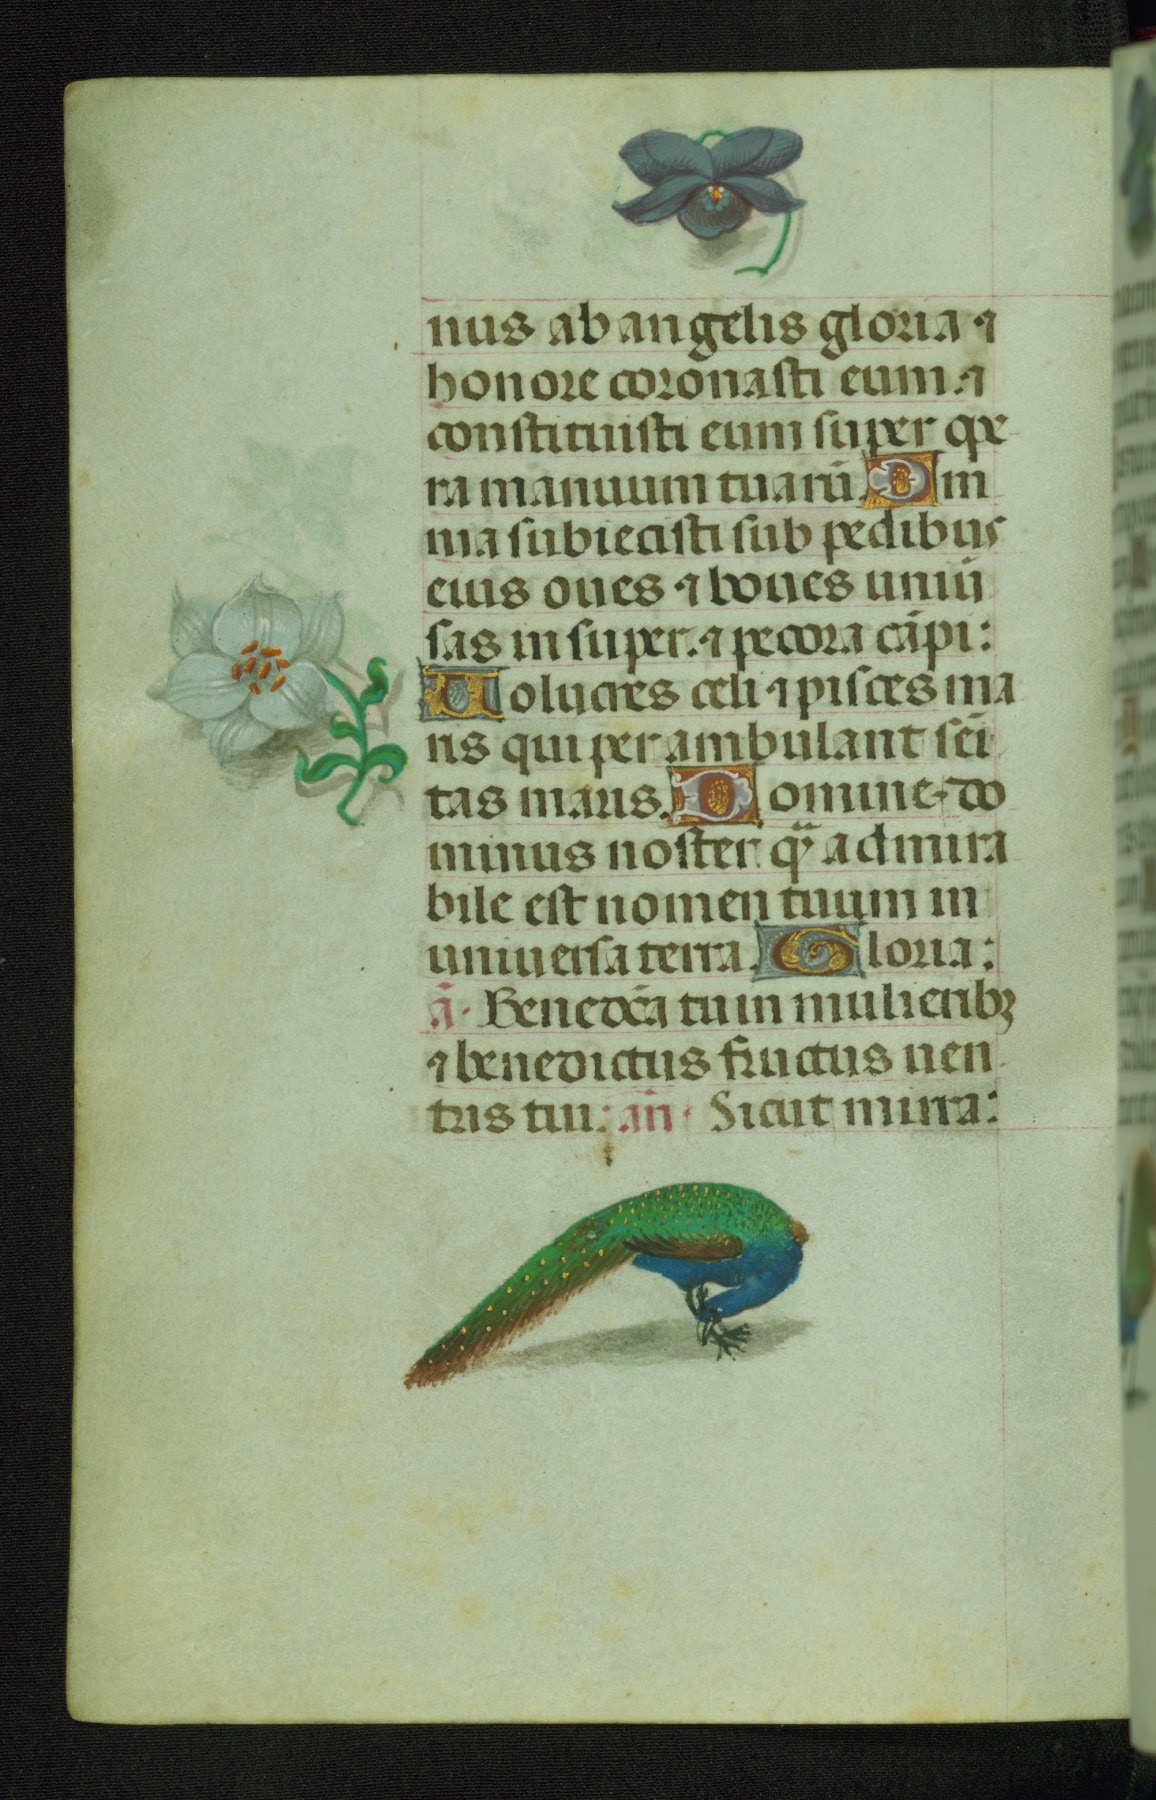 nus ab angelis gloria ⁊
honore coronasti eum. ⁊
constituisti eum super ope
ra manuum tuarū. Om
nia subiecisti sub pedibus
eius oues ⁊ boues uniu̅
sas insuper. ⁊ pecora cāpi:
Volucres celi ⁊ pisces ma
ris qui perambulant sēi
tas maris. Domine do
minus noster q̄ admira
bile est nomen tuum in
universa terra. Gloria:
ā. Benedc̄a tu in mulieribꝫ
⁊ benedictus fructus uen
tris tui: an̄ Sicut mirra: